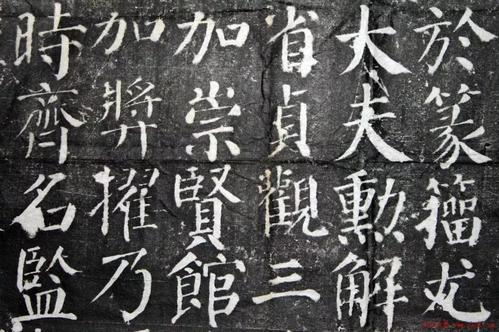 於篆籀尤
大夫勳解
省貞觀三
加崇賢館
加奬擢乃
時齊名監